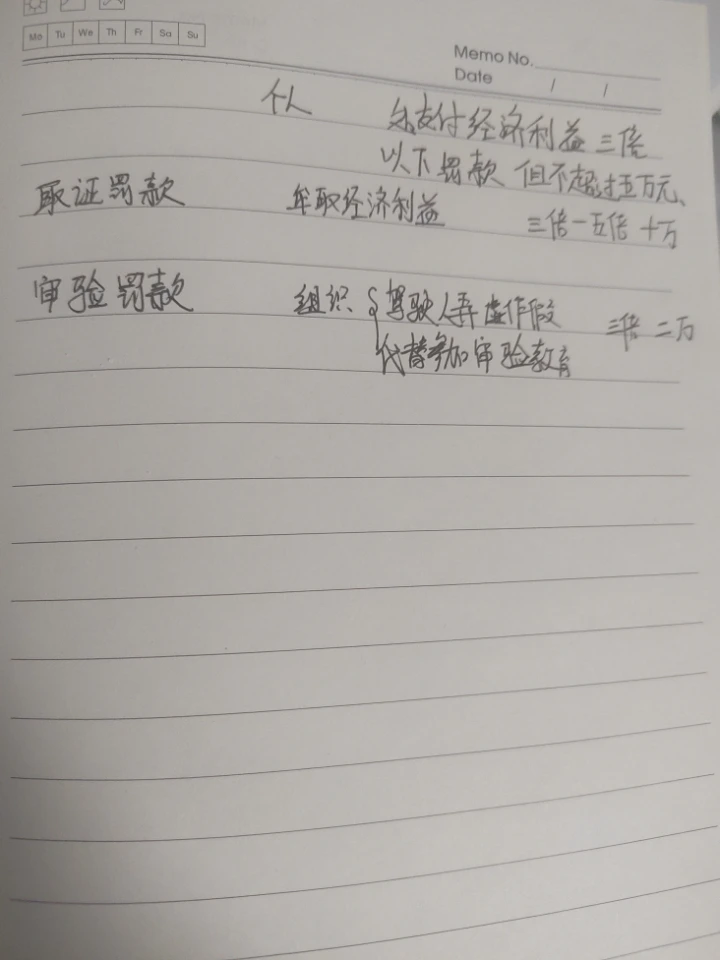 Mo Tu We Th Fr Sa Su
Memo No.
Date / /
个人 支付经济利益三倍
以下罚款 但不超过五万元、
取证罚款 牟取经济利益 三倍一五倍 十万
审验罚款 组织 驾驶人弄虚作假 三倍 二万
代替参加审验教育